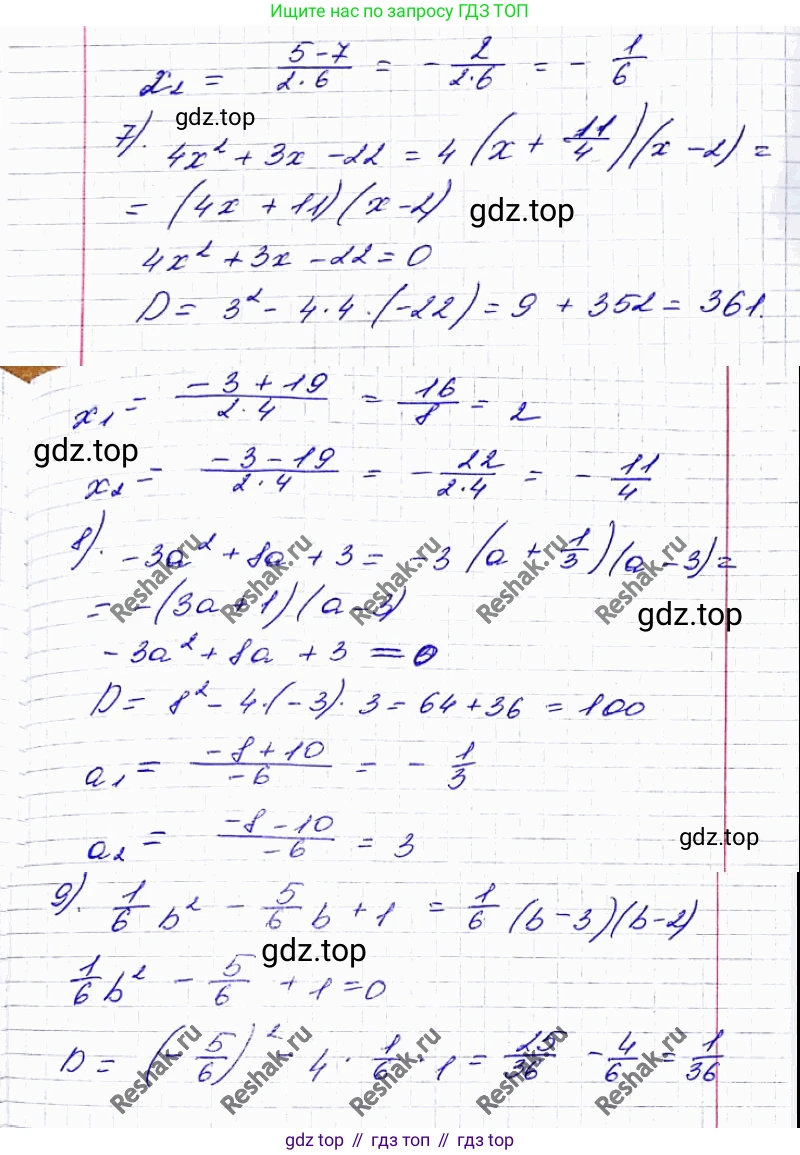 Ищите нас по запросу ГДЗ ТОП
x₂ = (5-7)/(2·6) = - 2/(2·6) = - 1/6
gdz.top
7). 4x² + 3x - 22 = 4 (x + 11/4)(x - 2) =
= (4x + 11)(x - 2)
gdz.top
4x² + 3x - 22 = 0
D = 3² - 4·4·(-22) = 9 + 352 = 361.
x₁ = (-3 + 19)/(2·4) = 16/8 = 2
gdz.top
x₂ = (-3 - 19)/(2·4) = - 22/(2·4) = - 11/4
8). -3a² + 8a + 3 = -3 (a + 1/3)(a - 3) =
Reshak.ru Reshak.ru Reshak.ru Reshak.ru
= -(3a + 1)(a - 3)
gdz.top
-3a² + 8a + 3 = 0
D = 8² - 4·(-3)·3 = 64 + 36 = 100
a₁ = (-8 + 10)/(-6) = - 1/3
a₂ = (-8 - 10)/(-6) = 3
gdz.top
9). 1/6 b² - 5/6 b + 1 = 1/6 (b - 3)(b - 2)
gdz.top
1/6 b² - 5/6 + 1 = 0
D = (- 5/6)² - 4 · 1/6 · 1 = 25/36 - 4/6 = 1/36
Reshak.ru Reshak.ru Reshak.ru Reshak.ru Reshak.ru
gdz.top // гдз топ // gdz.top